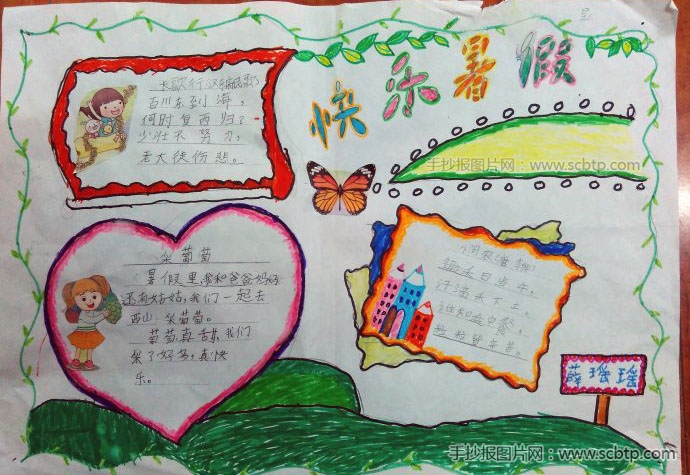 快乐暑假
长歌行
百川东到海，
何时复西归？
少壮不努力，
老大徒伤悲。
手抄报图片网：www.scbtp.com
采葡萄
暑假里我和爸爸妈妈
还有姑姑，我们一起去
西山采葡萄。
葡萄真甜，我们
采了好多，真快
乐。
锄禾日当午，
汗滴禾下土。
谁知盘中餐，
粒粒皆辛苦。
薛瑶瑶
手抄报图片网：www.scbtp.com